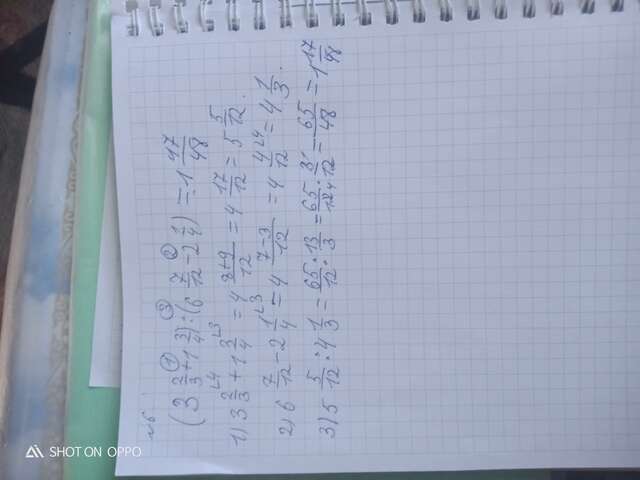 №6.
(3 2/3 + 1 3/4) : (6 7/12 - 2 1/4) = 1 17/48
1) 3 2/3 + 1 3/4 = 4 8+9/12 = 4 17/12 = 5 5/12.
2) 6 7/12 - 2 1/4 = 4 7-3/12 = 4 4/12 = 4 1/3.
3) 5 5/12 : 4 1/3 = 65/12 : 13/3 = 65/12 · 3/12 = 65/48 = 1 17/48
SHOT ON OPPO